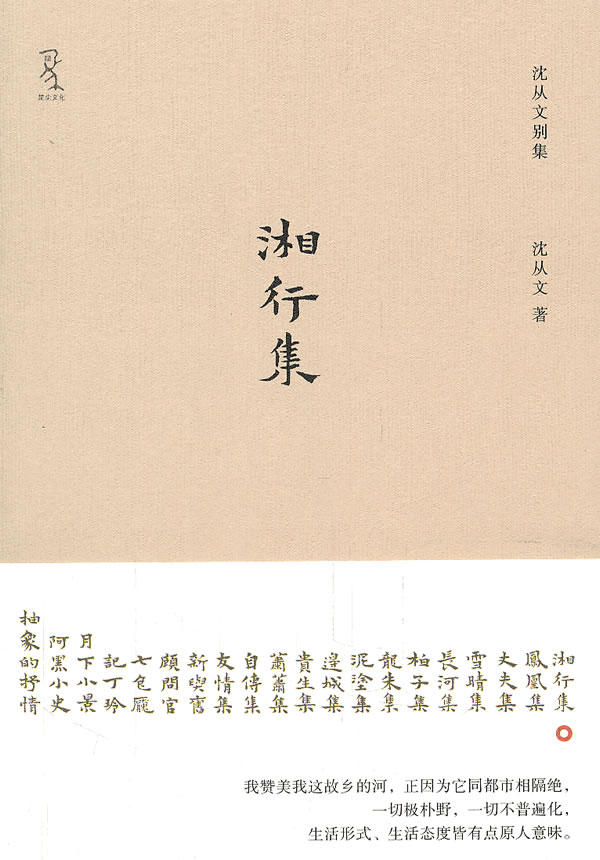 楚尘文化
沈从文别集
沈从文 著
湘行集
湘行集
鳳凰集
丈夫集
雪晴集
長河集
柏子集
龍朱集
泥塗集
邊城集
貴生集
蕭蕭集
自傳集
友情集
新與舊
顧問官
七色魘
記丁玲
月下小景
阿黑小史
抽象的抒情
我赞美我这故乡的河，正因为它同都市相隔绝，
一切极朴野，一切不普遍化，
生活形式、生活态度皆有点原人意味。